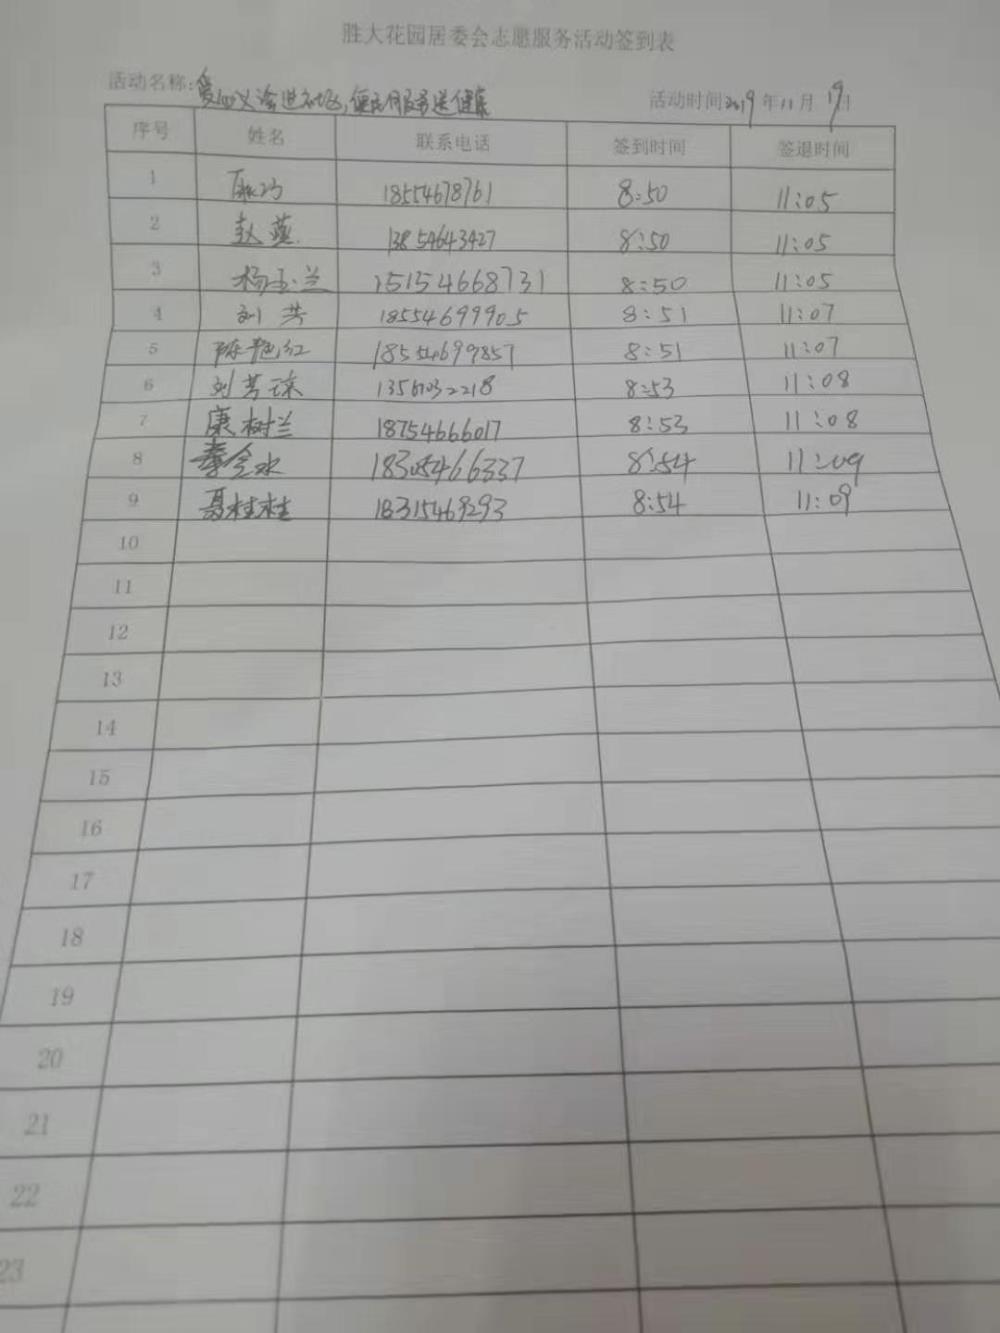 胜大花园居委会志愿服务活动签到表
活动名称:爱心义诊进社区,便民服务送健康 活动时间2019年11月19日
序号 姓名 联系电话 签到时间 签退时间
1 18554678761 8:50 11:05
2 赵燕 13854643427 8:50 11:05
3 杨玉兰 15154668731 8:50 11:05
4 刘芳 18554699905 8:51 11:07
5 陈艳红 18554699857 8:51 11:07
6 刘芳 13561032218 8:53 11:08
7 康树兰 18754666017 8:53 11:08
8 秦金水 18305466337 8:54 11:09
9 聂桂桂 18315469293 8:54 11:09
10
11
12
13
14
15
16
17
18
19
20
21
22
23